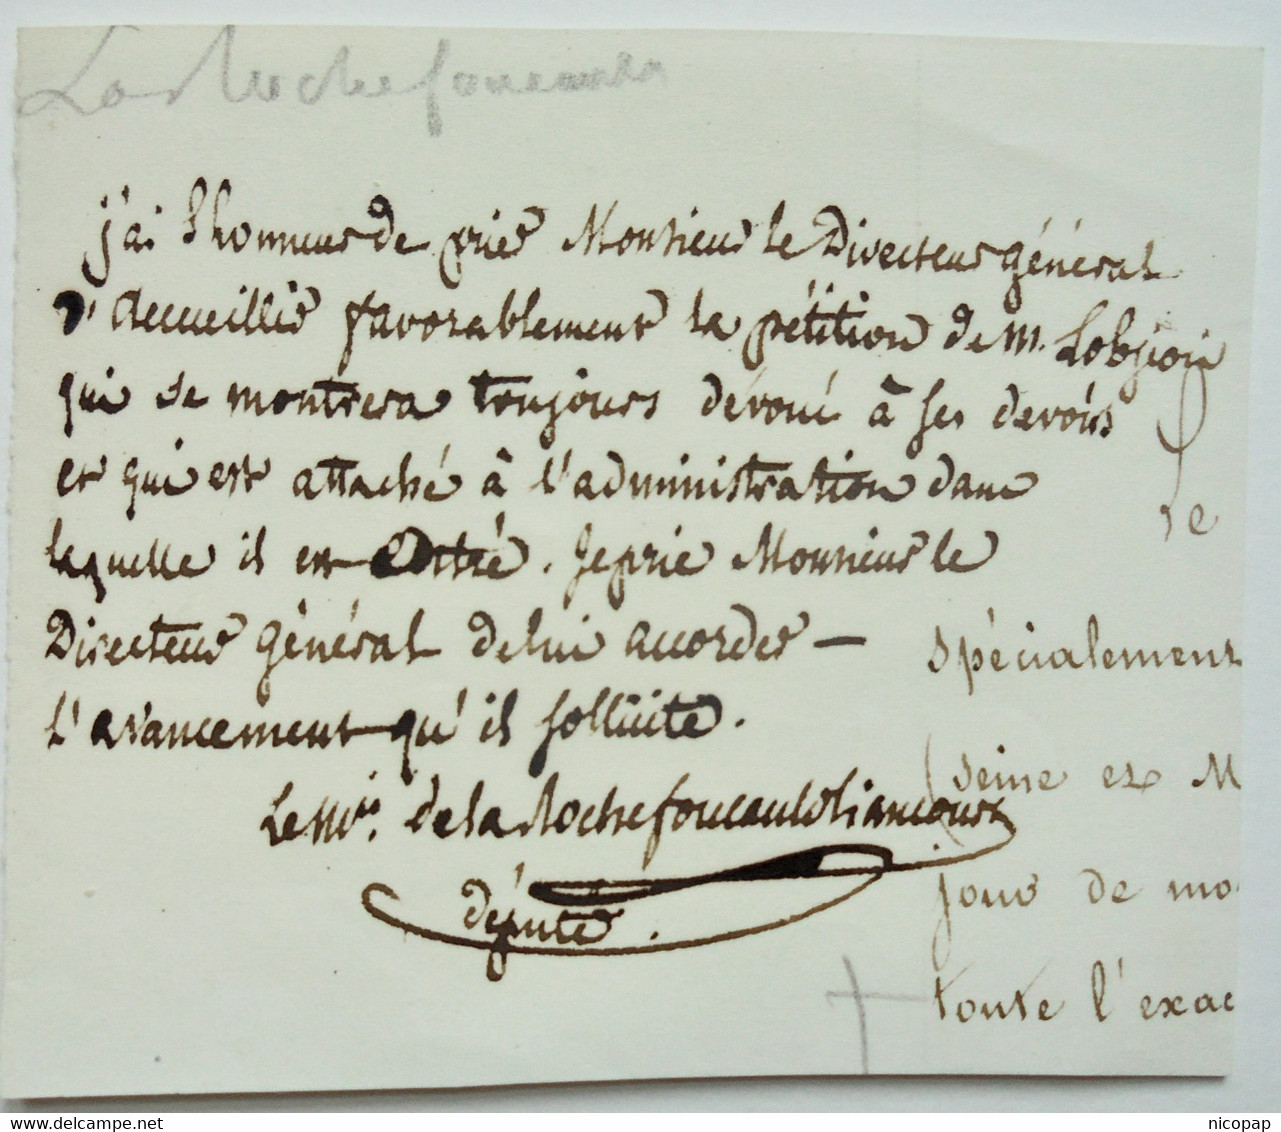 La Rochefoucauld
j'ai l'honneur de prier Monsieur le Directeur général
d'accueillir favorablement la pétition de M. Lobjoin
qui se montrera toujours dévoué à ses devoirs
et qui est attaché à l'administration dans
laquelle il est entré. Je prie Monsieur le
Directeur général de lui accorder —
l'avancement qu'il sollicite.
Le Mis. de la Rochefoucauld Liancourt
député.
re
spécialement
(Seine et M
jour de mo
toute l'exac
www.delcampe.net
nicopap